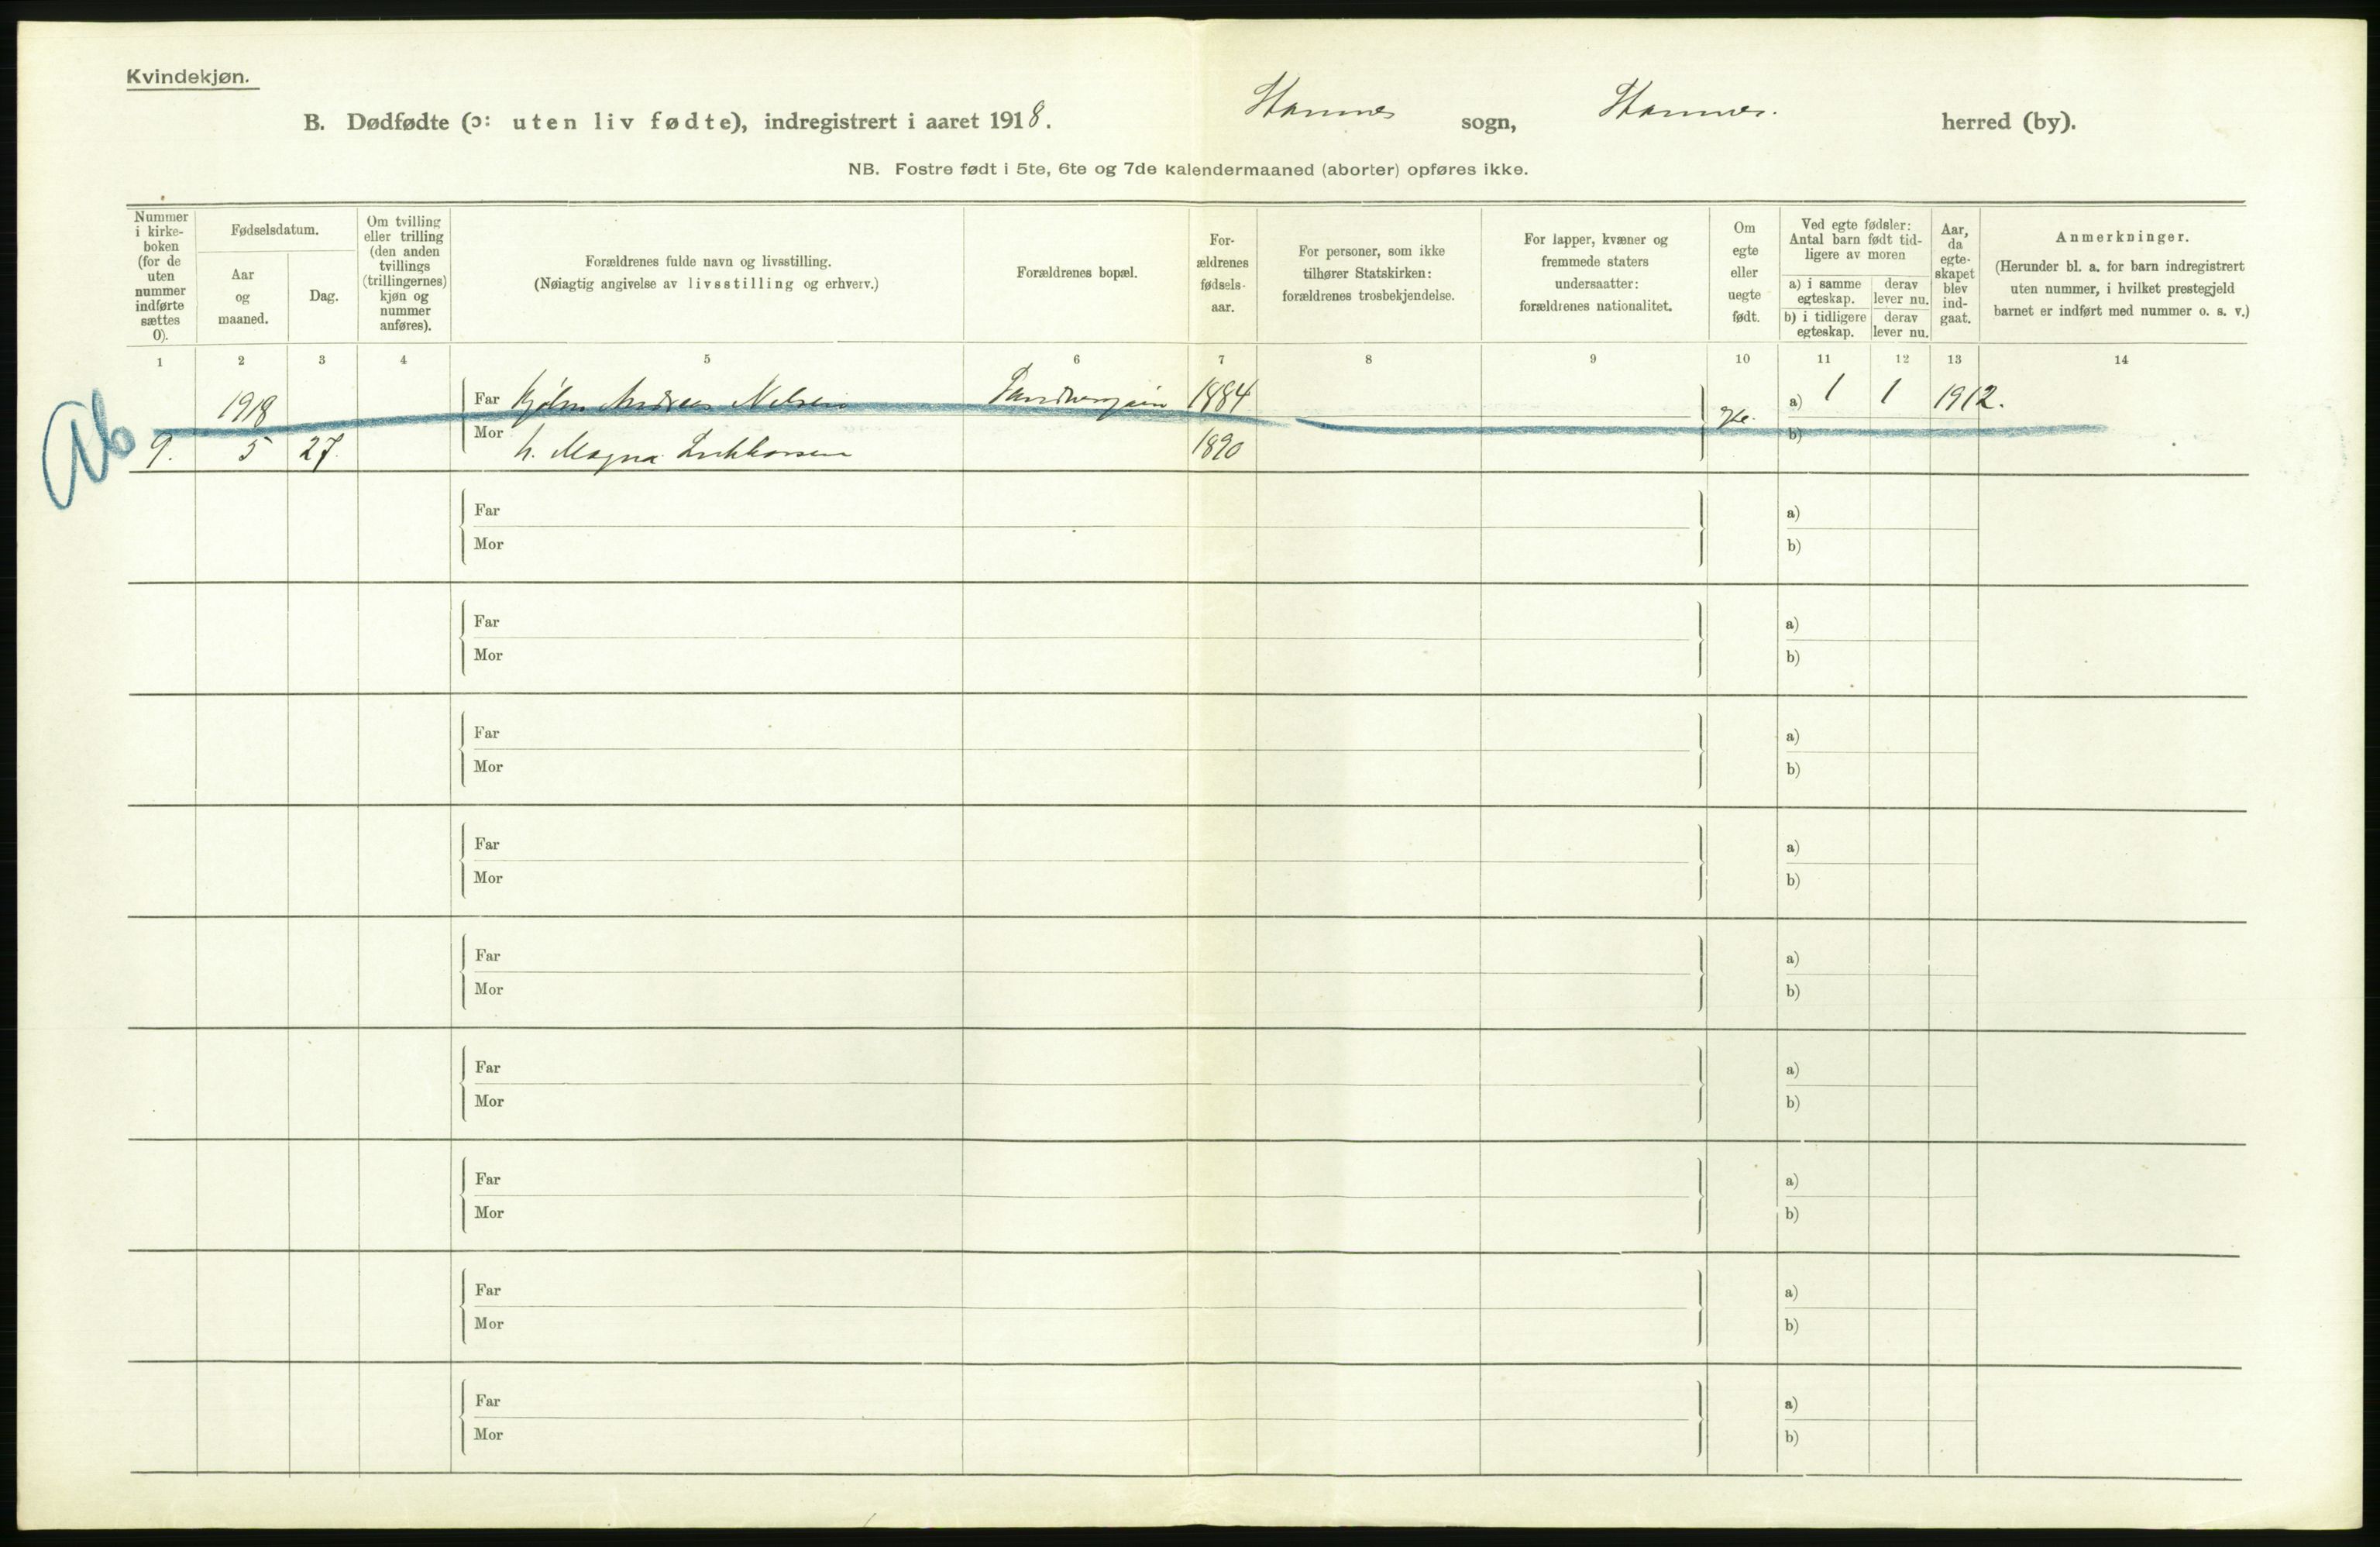 Kvindekjøn.
B. Dødfødte (ɔ: uten liv fødte), indregistrert i aaret 1918. Stamnes sogn, Stamnes. herred (by).
NB. Fostre født i 5te, 6te og 7de kalendermaaned (aborter) opføres ikke.
Nummer i kirke-boken (for de uten nummer indførte sættes 0).
Fødselsdatum.
Aar og maaned.
Dag.
Om tvilling eller trilling (den anden tvillings (trillingernes) kjøn og nummer anføres).
Forældrenes fulde navn og livsstilling.
(Nøiagtig angivelse av livsstilling og erhverv.)
Forældrenes bopæl.
For-ældrenes fødsels-aar.
For personer, som ikke tilhører Statskirken: forældrenes trosbekjendelse.
For lapper, kvæner og fremmede staters undersaatter: forældrenes nationalitet.
Om egte eller uegte født.
Ved egte fødsler: Antal barn født tid-ligere av moren
a) i samme egteskap.
derav lever nu.
b) i tidligere egteskap.
derav lever nu.
Aar, da egte-skapet blev ind-gaat.
Anmerkninger.
(Herunder bl. a. for barn indregistrert uten nummer, i hvilket prestegjeld barnet er indført med nummer o. s. v.)
1 2 3 4 5 6 7 8 9 10 11 12 13 14
Ab
1918 Far Andreas Nilsen 1884 a) 1 1 1912.
9. 5 27. Mor h. Magna 1890 egte. b)
Far a)
Mor b)
Far a)
Mor b)
Far a)
Mor b)
Far a)
Mor b)
Far a)
Mor b)
Far a)
Mor b)
Far a)
Mor b)
Far a)
Mor b)
Far a)
Mor b)